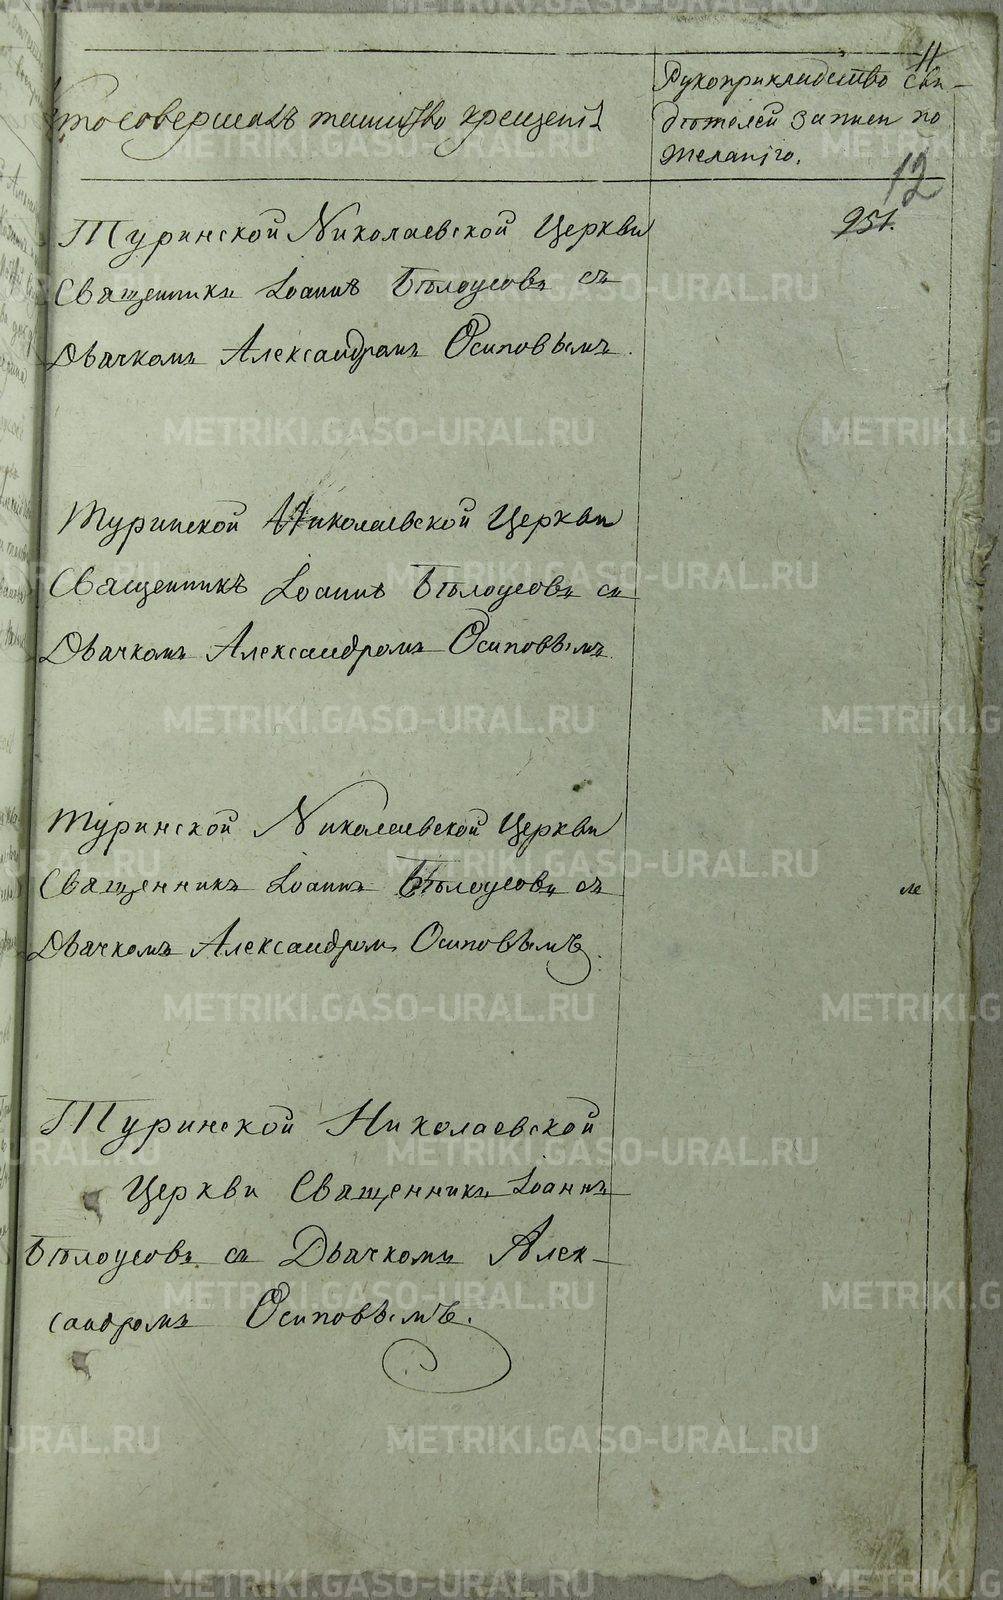 11
Кто совершалъ таинство крещенiя
Рукоприкладство сви-
дѣтелей записи по
желанiю.
12
251.
Туринской Николаевской Церкви
Священникъ Iоаннъ Бѣлоусовъ съ
Дьячкомъ Александромъ Осиповымъ.
Туринской Николаевской Церкви
Священникъ Iоаннъ Бѣлоусовъ съ
Дьячкомъ Александромъ Осиповымъ
Туринской Николаевской Церкви
Священникъ Iоаннъ Бѣлоусовъ съ
Дьячкомъ Александромъ Осиповымъ.
Туринской Николаевской
Церкви Священникъ Iоаннъ
Бѣлоусовъ съ Дьячкомъ Алек-
сандромъ Осиповымъ.
METRIKI.GASO-URAL.RU